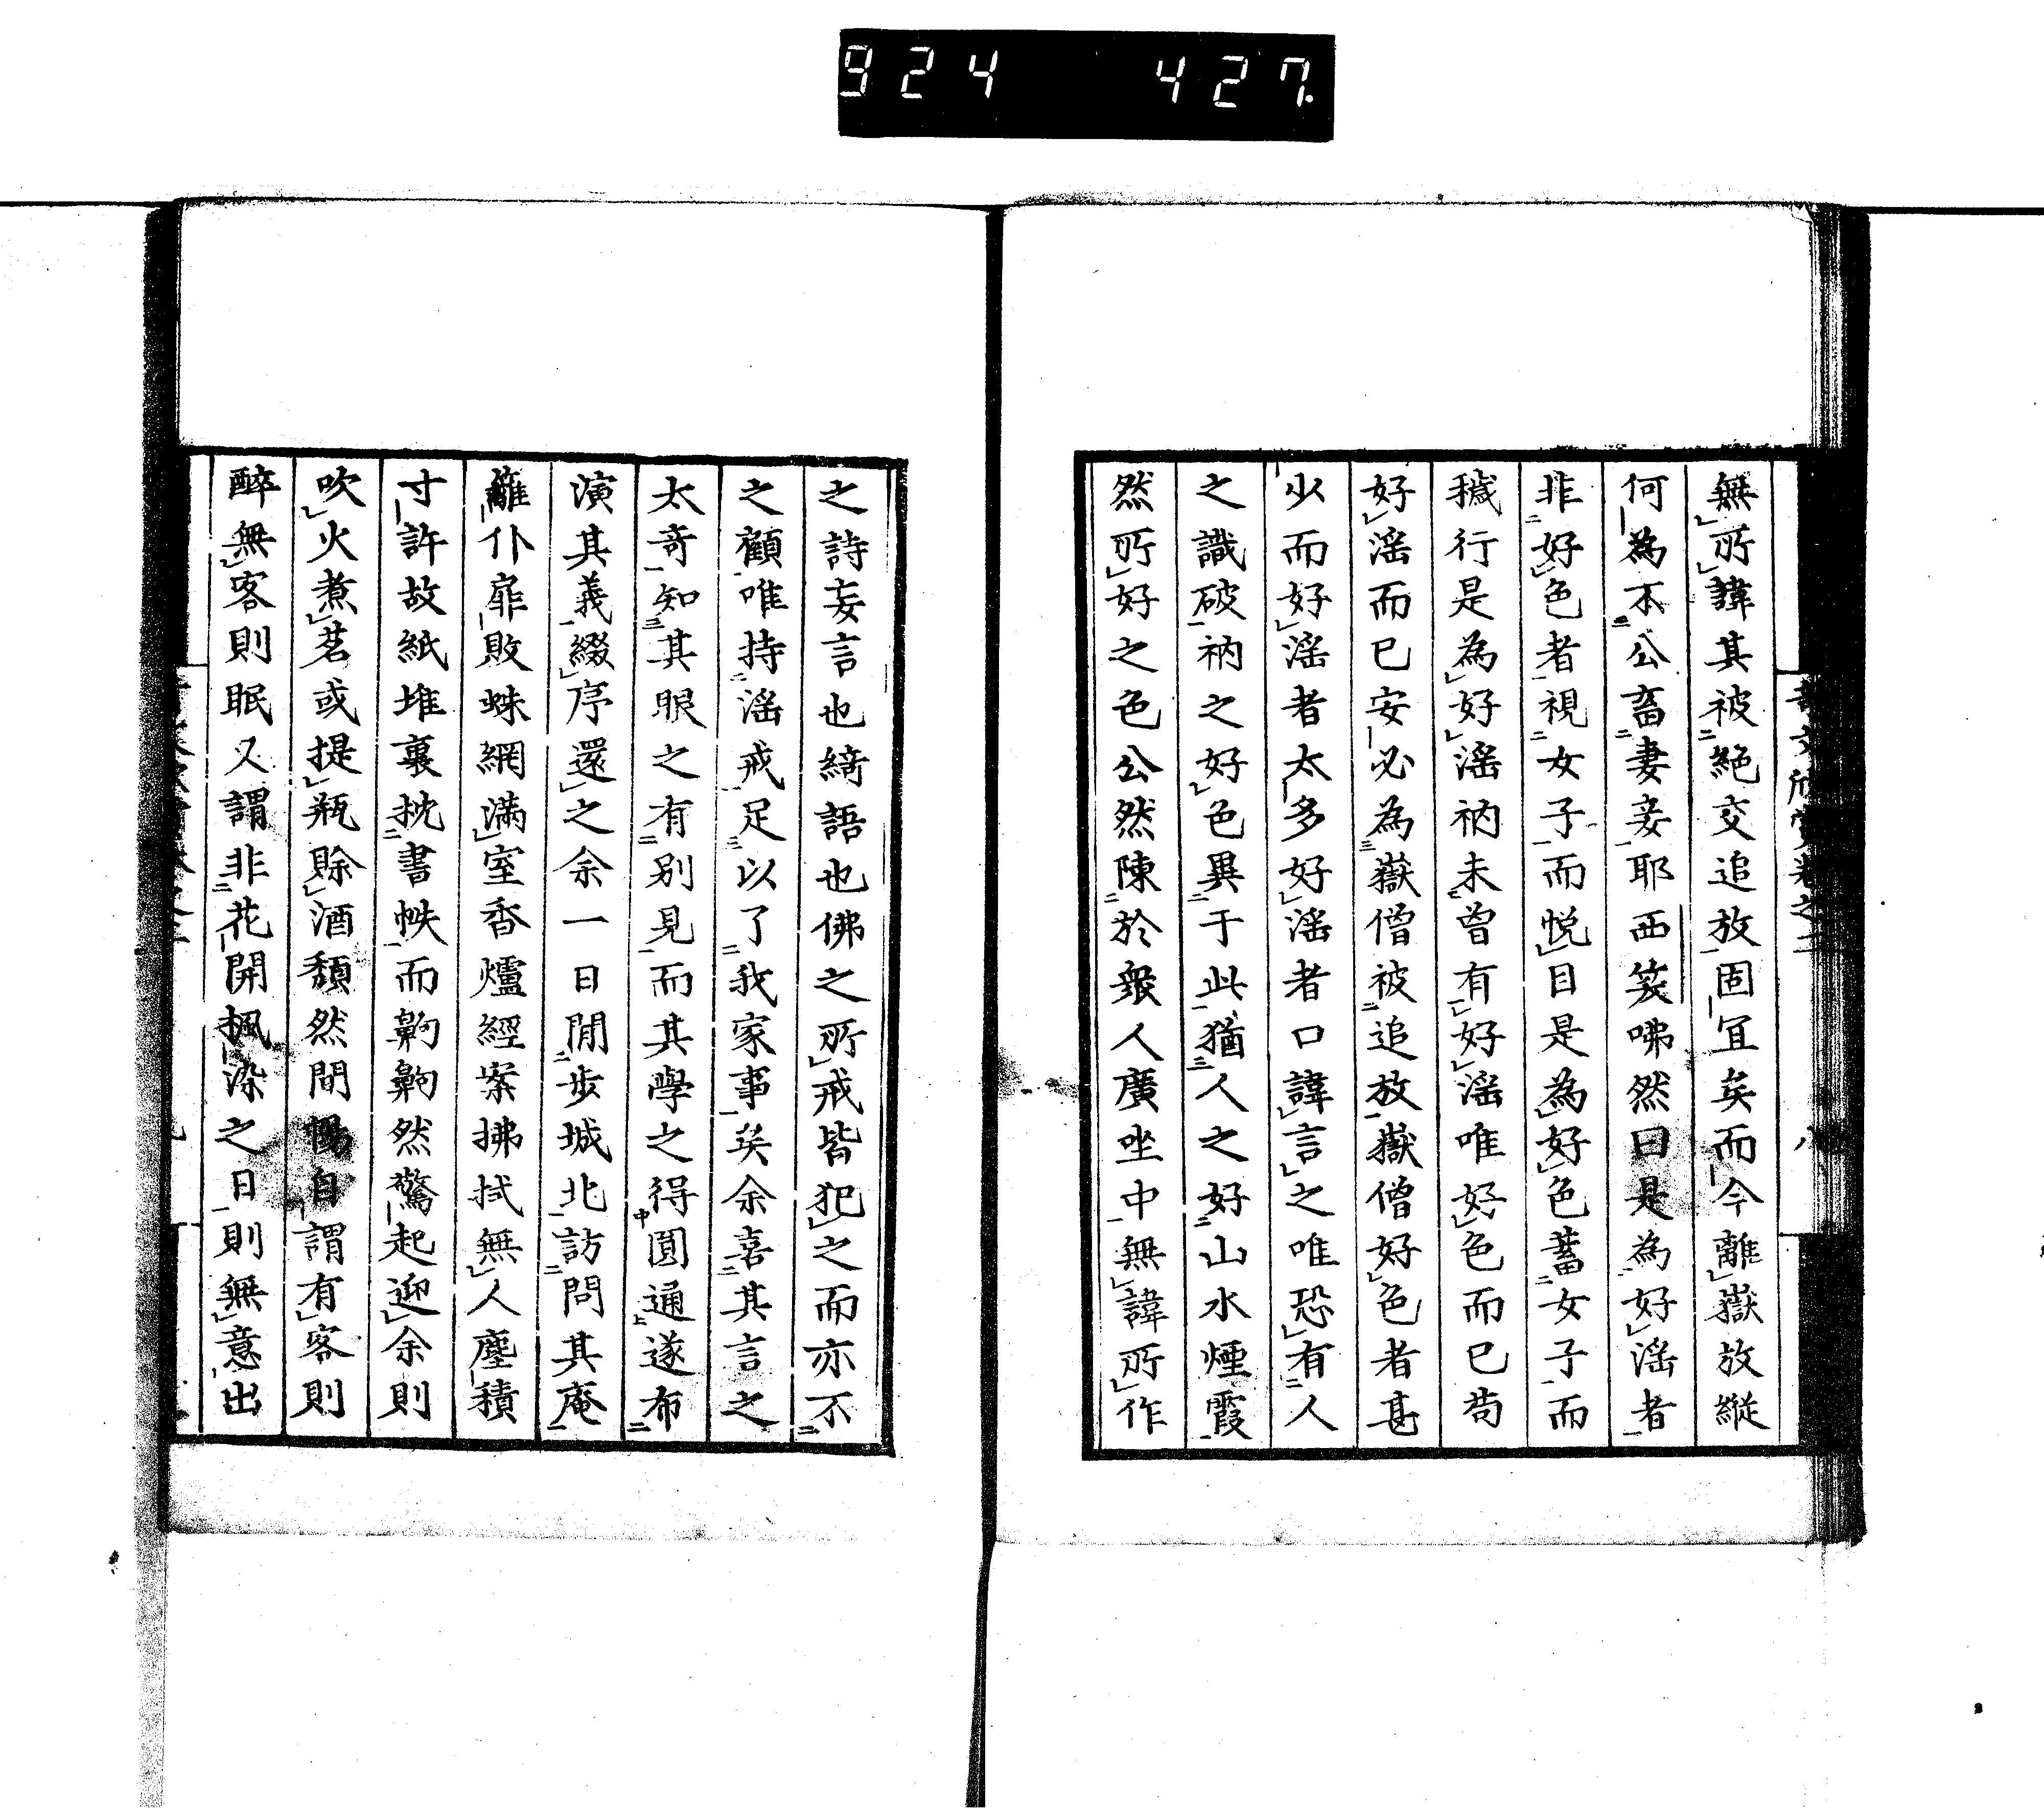 924 427.
無所諱其被絶交追放固宜矣而今離嶽放縱
何為不公畜妻妾耶西笑咈然曰是為好滛者
非好色者視女子而悦目是為好色蓄女子而
穢行是為好滛衲未曽有好滛唯好色而已苟
好滛而已安必為嶽僧被追放嶽僧好色者甚
少而好滛者太多好滛者口諱言之唯恐有人
之識破衲之好色異于此猶人之好山水煙霞
然所好之色公然陳於衆人廣坐中無諱所作
之詩妄言也綺語也佛之所戒皆犯之而亦不
之顧唯持滛戒足以了我家事矣余喜其言之
太奇知其眼之有別見而其學之得圓通遂布
演其義綴序還之余一日閒步城北訪問其庵
籬仆扉敗蛛網滿室香爐經案拂拭無人塵積
寸許故紙堆裏枕書帙而齁齁然驚起迎余則
吹火煮茗或提瓶賒酒頽然間暢自謂有客則
醉無客則眠又謂非花開楓染之日則無意出